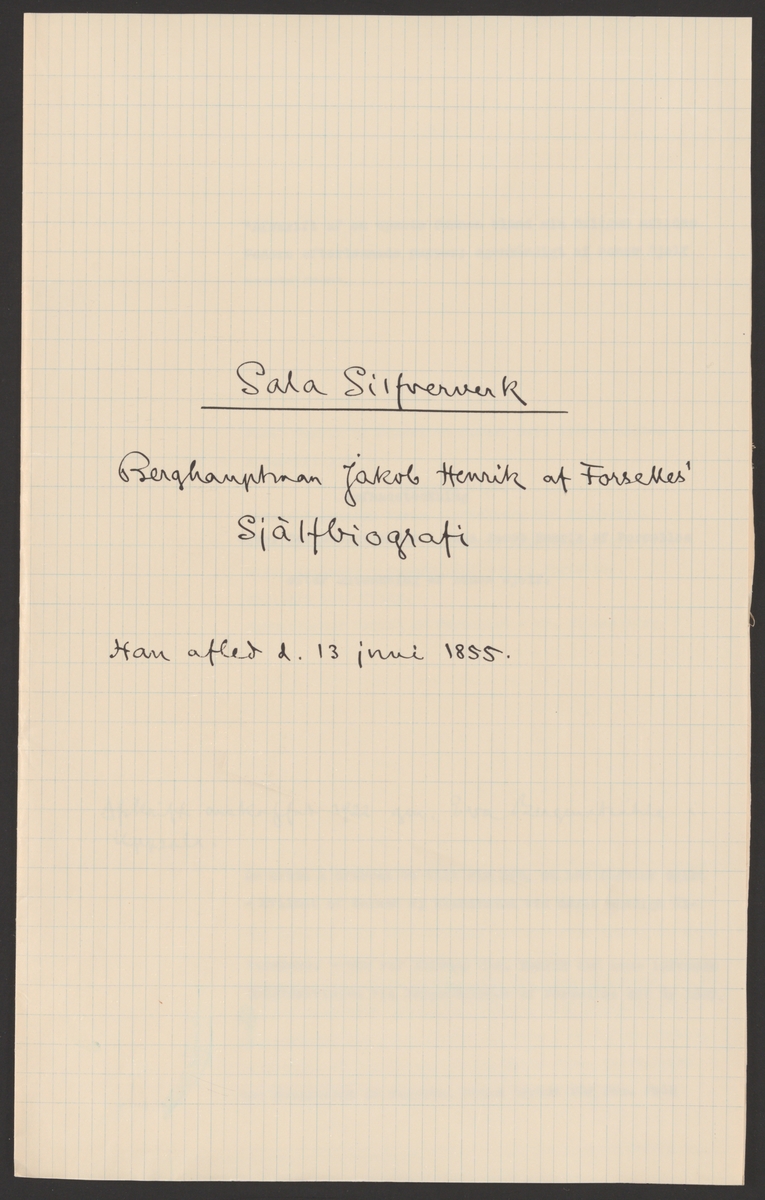 Sala Silfververk
Berghauptman Jakob Henrik af Forselles'
Självbiografi
Han afled d. 13 juni 1855.